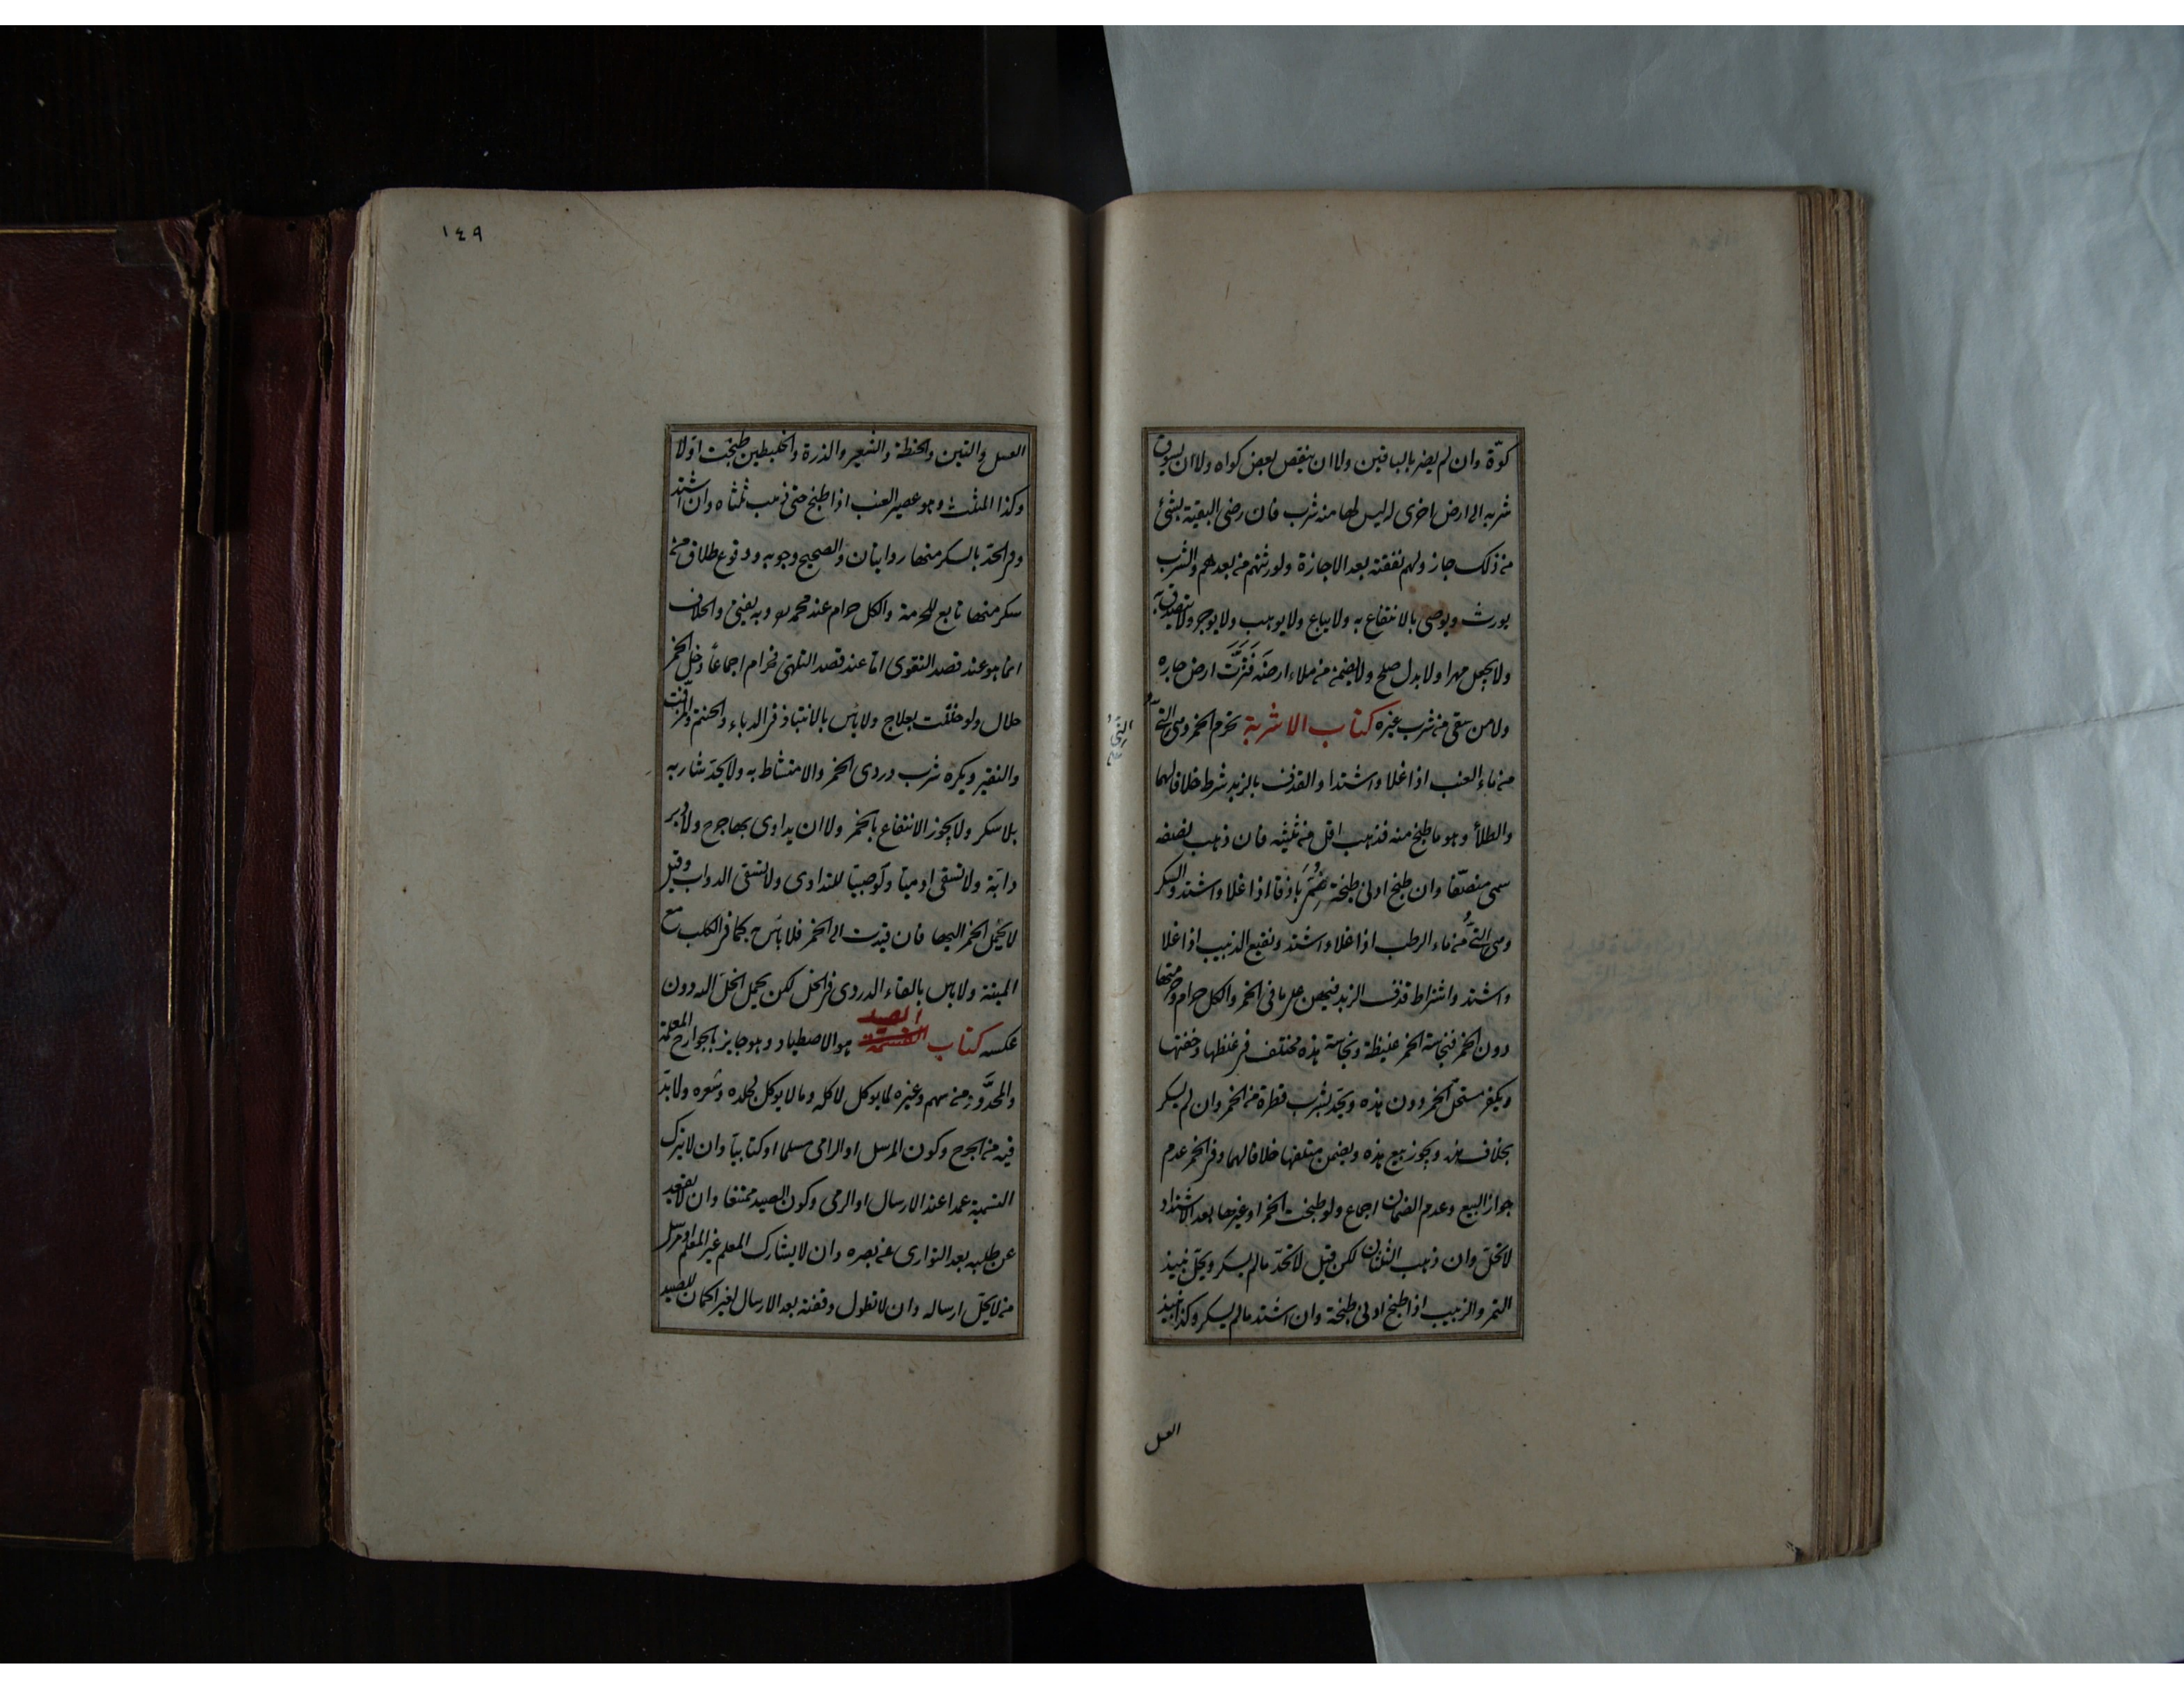 كوّة وان لم يضر بالباقين ولا ان ينقص بعض كواه ولا ان يسوق
شربه الى ارض اخرى له ليس لها منه شرب فان رضى البقية بشئ
من ذلك جاز ولهم نقضه بعد الاجازة ولورثتهم من بعدهم والشرب
يورث ويوصى بالانتفاع به ولا يباع ولا يوهب ولا يوجر ولا يتصدق به
ولا يجعل مهرا ولا بدل صلح ولا يضمن من ملاء ارضه فنزّت ارض جاره
ولا من سقى من شرب غيره كتاب الاشربة تحرم الخمر وهى النئ
النئ
صح
من ماء العنب اذا غلا واشتد والقذف بالزبد شرط خلافا لهما
والطلأ وهو ما طبخ منه فذهب اقل من ثلثيه فان ذهب نصفه
سمى منصّفا وان طبخ ادنى طبخة سمى باذقا اذا غلا واشتد والسكر
وهى النئ من ماء الرطب اذا غلا واشتد ونقيع الزبيب اذا غلا
واشتد واشتراط قذف الزبد فيهن على ما فى الخمر والكل حرام وحرمتها
دون الخمر فنجاسة الخمر غليظة ونجاسة هذه مختلف فى غلظها وخفتها
ويكفر مستحل الخمر دون هذه ويحد بشرب قطرة من الخمر وان لم يسكر
بخلاف هذه ويجوز بيع هذه ويضمن متلفها خلافا لهما وفى الخمر عدم
جواز البيع وعدم الضمان اجماع ولو طبخت الخمر او غيرها بعد الاشتداد
لا تحل وان ذهب الثلثان لكن قيل لا تحد ما لم يسكر ويحل نبيذ
التمر والزبيب اذا طبخ ادنى طبخة وان اشتد ما لم يسكر وكذا نبيذ
العسل
١٤٩
العسل والتين والحنطة والشعير والذرة والخليطين طبخت اولا
وكذا المثلث وهو عصير العنب اذا طبخ حتى ذهب ثلثاه وان اشتد
وفى الحد بالسكر منها روايتان والصحيح وجوبه ووقوع طلاق من
سكر منها تابع للحرمة والكل حرام عند محمد وبه يفتى والخلاف
انما هو عند قصد التقوى اما عند قصد التلهى فحرام اجماعا وخل الخمر
حلال ولو خللت بعلاج ولا بأس بالانتباذ فى الدباء والحنتم والمزفت
والنقير ويكره شرب دردى الخمر والامتشاط به ولا يحد شاربه
بلا سكر ولا يجوز الانتفاع بالخمر ولا ان يداوى بها جرح ولا دبر
دابة ولا تسقى ادميا ولو صبيا للتداوى ولا تسقى الدواب وقيل
لا يحمل الخمر اليها فان قيدت الى الخمر فلا بأس كما فى الكلب مع
الميتة ولا باس بالقاء الدردى فى الخل لكن يحمل الخل اليه دون
عكسه كتاب الصيد هو الاصطياد وهو جايز بالجوارح المعلمة
والمحدّد من سهم وغيره لما يوكل لاكله وما لا يوكل لجلده وشعره ولا بد
فيه من الجرح وكون المرسل او الرامى مسلما او كتابيا وان لا يترك
التسمية عمدا عند الارسال او الرمى وكون الصيد ممتنعا وان لا يقعد
عن طلبه بعد التوارى عن بصره وان لا يشارك المعلم غير المعلم او مرسل
من لا يحل ارساله وان لا تطول وقفته بعد الارسال لغير اكمان للصيد